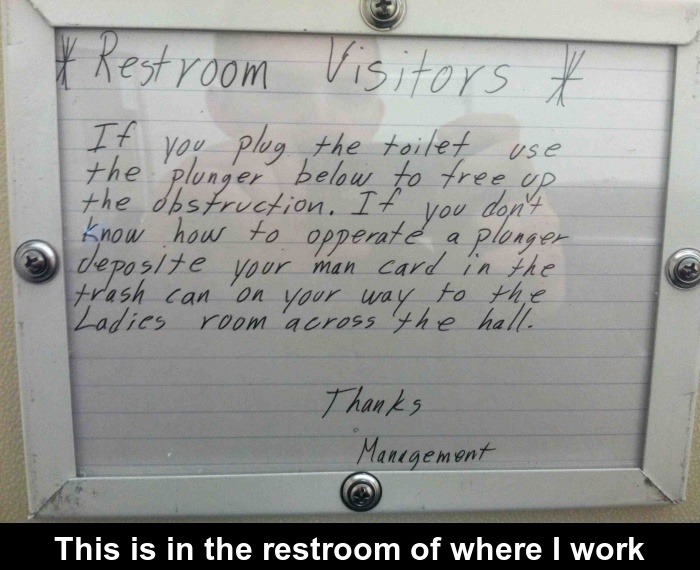 * Restroom Visitors *
If you plug the toilet use
the plunger below to free up
the obstruction. If you don't
know how to opperate a plunger
deposite your man card in the
trash can on your way to the
Ladies room across the hall.
Thanks
Management
This is in the restroom of where I work